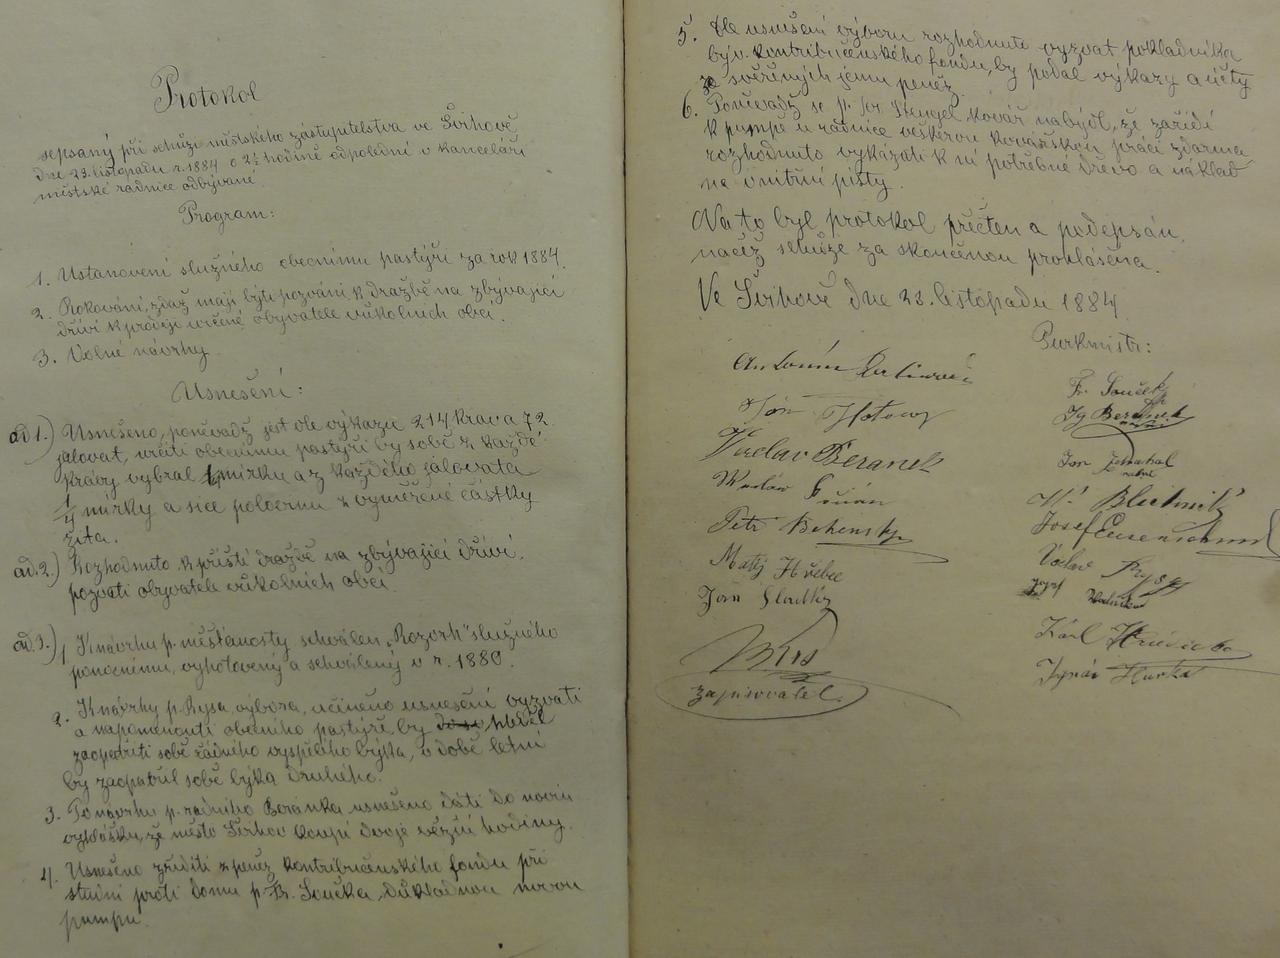 Protokol
sepsaný při schůzi městského zástupitelstva ve Švihově
dne 23. listopadu r. 1884 o 2½ hodině odpolední v kanceláři
městské radnice odbývané.
Program:
1. Ustanovení služného obecnímu pastýři za rok 1884.
2. Rokování, zdaž mají býti pozváni k dražbě na zbývající
dříví k prodeji určené obyvatelé okolních obcí.
3. Volné návrhy.
Usnešení:
ad 1.) Usnešeno, poněvadž jest dle výkazu 214 krav a 72
jalovat, určiti obecnímu pastýři by sobě z každé
krávy vybral mírku a z každého jalovata
1/4 mírky a sice polovinu z vyměřené částky
žita.
ad. 2.) Rozhodnuto k příští dražbě na zbývající dříví
pozvati obyvatele okolních obcí.
ad. 3.) 1 K návrhu p. měšťanosty schválen „Rozvrh" služného
ponocnému, vyhotovený a schválený v r. 1880.
2. K návrhu p. Rysa, výbora, učiněno usnešení vyzvati
a napomenouti obecního pastýře by hleděl
zaopatřiti sobě řádného vyspělého býka, v době letní
by zaopatřil sobě býka druhého.
3. Po návrhu p. radního Beránka usnešeno dáti do novin
vyhlášku, že město Švihov koupí dvoje věžní hodiny.
4. Usnešeno zříditi z peněz kontribučenského fondu při
studni proti domu p. Fr. Součka, důkladnou novou
pumpu.
5. Dle usnešení výboru rozhodnuto vyzvat pokladníka
býv. kontribučenského fondu, by podal výkazy a účty
ze svěřených jemu peněz.
6. Poněvadž se p. kovář nabýdl, že zařídí
k pumpě u radnice veškerou kovářskou práci zdarma
rozhodnuto vykázati k ní potřebné dřevo a náklad
na vnitřní písty.
Na to byl protokol přečten a podepsán,
načež schůze za skončenou prohlášena.
Ve Švihově dne 23. listopadu 1884
Purkmistr:
Antonín
Jan
Václav Beranek
Petr
Matěj Hřebec
Jan Sladký
zapisovatel
Fr. Souček
Ig. Beránek
Jan
Josef
Václav Rys
Karel
Ignác